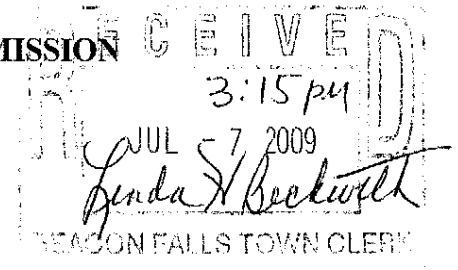 MISSION
RECEIVED
3:15 PM
JUL - 7 2009
Linda H Beckwith
BEACON FALLS TOWN CLERK